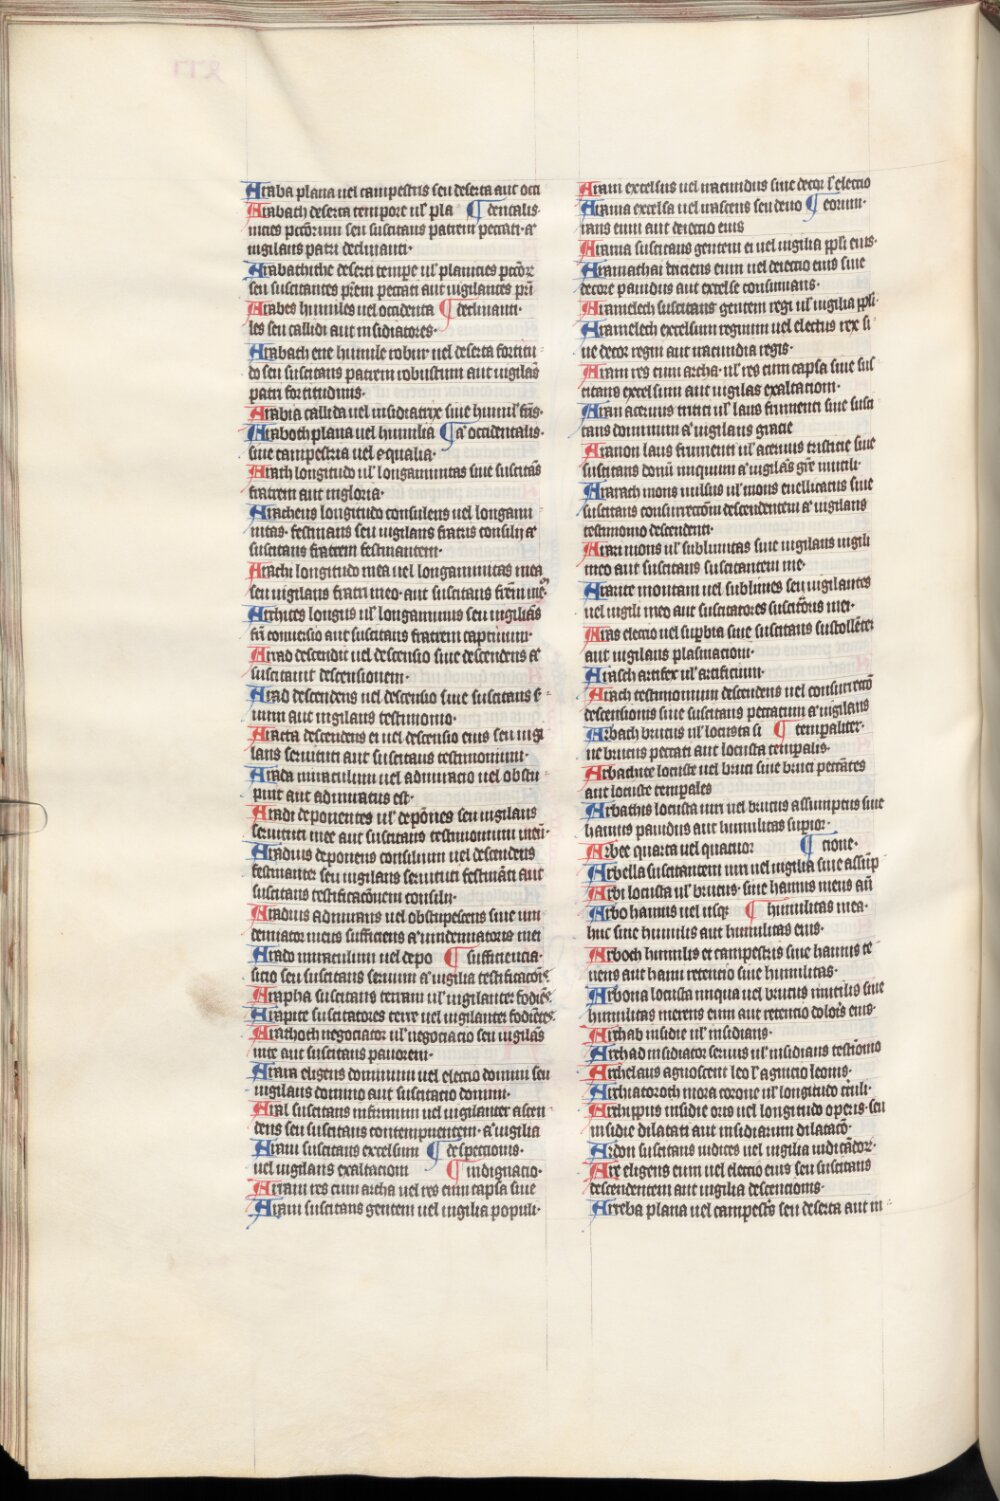 Araba plana uel campestris seu deserta aut occi
Arabach deserta tempore ul' pla ¶ dentalis·
nicies pctorum seu suscitans patrem peccati· aͭ
uigilans patri declinanti·
Arabathithe deserti tempe ul' planicies pctoꝝ
seu suscitantes pr̃em peccati aut uigilantes pr̃i
Arabes humiles uel occidenta ¶ declinanti·
les seu callidi aut insidiatores·
Arabach ene humile robur uel deserta fortitu
do seu suscitans patrem robustum aut uigilãs
patri fortitudinis·
Arabia callida uel insidiatrix siue humil'
Araboth plana uel humilia ¶ occidentalis·
siue campestria uel equalia·
Arach longitudo ul' longanimitas siue suscitãs
fratrem aut inglozia·
Aracheus longitudo consulens uel longani
mitas· festinans seu uigilans fratris consilij aͭ
suscitans fratrem festinantem·
Arachi longitudo mea uel longanimitas mea
seu uigilans fratri meo· aut suscitans fr̃em
Arachites longus ul' longanimus seu uigiliãs
conuersio aut suscitans fratrem captiuum·
Arad descendit uel descensio siue descendens aͭ
suscitauit descensionem·
Arad descendens uel descensio siue suscitans
aut uigilans testimonio·
Aracta descendens ei uel descensio eius seu uigi
lans seruienti aut suscitans testimonium·
Arada miraculum uel admiratio uel obstu
puit aut admiratus est·
Aradi deponentes ul' depõnes seu uigilans
seruituti mee aut suscitans testimonium meũ·
Aradius deponens consilium uel descendens
festinanter seu uigilans seruituti festinãti aut
suscitans testificacõnem consilij·
Aradius admirans uel obstupescens siue uin
demiator meus sufficiens aͭ uindemiatoris mei
Arado miraculum uel depo ¶ sufficiencia·
sicio seu suscitans seruum aͭ uigilia testificacõis·
Arapha suscitans terram ul' uigilanter fodiẽs·
Araphite suscitatores terre uel uigilanter fodiẽtes·
Arachoth negociator ul' negociacio seu uigilãs
ire aut suscitans pauorem·
Araria eligens dominum uel electio domini seu
uigilans domino aut suscitatio domini·
Aral suscitans infirmum uel uigilanter ascen
dens seu suscitans contemptientem· aͭ uigilia
Aram suscitans excelsum ¶ despectionis·
uel uigilans exaltacioni ¶ indignatio·
Arram res cum archa uel res cum capsa siue
Aram suscitans gentem uel uigilia populi·
Aram excelsus uel iracundus siue decor ł electio
Arama excelsa uel irascens seu deuo ¶ eorum·
rans eum aut deiectio eius
Arama suscitans gentem ei uel uigilia ppli eius·
Aramathai deiciens eum uel deiectio eius siue
decore pauidus aut excelse consumans·
Aramelech suscitans gentem regi ul' uigilia ppli·
Aramelech excelsum regnum uel electus rex si
ue decor regni aut iracundia regis·
Aram res cum archa· ul' res cum capsa siue sus
citans excelsum aut uigilas exaltacioni·
Aran aceruus tritici ul' laus frumenti siue susci
tans dominum aͭ uigilans gracie
Aranon laus frumenti ul' aceruus tristicie siue
suscitans donũ iniquum aͭ uigilãs gr̃e inutili·
Ararach mons uulsus ul' mons euellicatus siue
suscitans consurrectõni descendentem aͭ uigilans
testimonio descendenti·
Arari mons ul' sublimitas siue uigilans uigili
meo aut suscitans suscitantem me·
Ararite montani uel sublimes seu uigilantes
uel uigili meo aut suscitatores suscitõris mei·
Aras electio uel supbia siue suscitans sustollẽtẽ
aut uigilans plasmacioni·
Arasch artifex ul' artificium·
Arach testimonium descendens uel consurrectõ
descensionis siue suscitans peccatum aͭ uigilans
Arbach brucus ul' locusta si ¶ tempaliter·
ue brucus peccati aut locusta tempalis·
Arbachite locuste uel bruci siue bruci peccãtes
aut locuste tempales
Arbathis locusta uiri uel brucus assumptus siue
hamus pauidus aut humilitas supior·
Arbee quarta uel quatuor ¶ cione·
Arbella suscitantem uiri uel uigilia siue assũp
Arbi locusta ul' brucus· siue hamus meus aũ
Arbo hamus uel usqꝫ ¶ humilitas mea·
huc siue humilis aut humilitas eius·
Arboch humilis et campestris siue hamus te
nens aut hami retentio siue humilitas·
Arbona locusta iniqua uel brucus inutilis siue
humilitas merens eum aut retentio dolõis eius·
Archab insidie ul' insidians·
Archad insidiator seruus ul' insidians testiõnio
Archelaus agnoscent leo ł agnitio leonis·
Archiatoroch mora corone ul' longitudo
Archippus insidie oris uel longitudo operis· seu
insidie dilatati aut insidiarum dilatacõ·
Ardon suscitans iudices uel uigilia iudicãdoꝝ·
Are eligens eum uel electio eius seu suscitans
descendentem aut uigilia descencionis·
Areeba plana uel campestr̃s seu deserta aut in